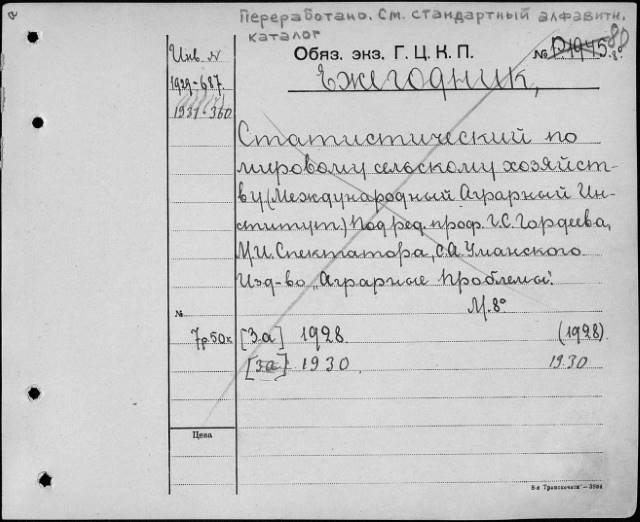 Переработано. См. стандартный алфавитн.
каталог
Инв. N
Обяз. экз. Г. Ц. К. П.
№ D1945 80
8°.
Ежегодник,
1929-687.
1931-360
Статистический по
мировому сельскому хозяйст-
ву (Международный Аграрный Ин-
ститут) Под ред. проф. Г.С. Гордеева,
М.И. Спектатора, С.А. Уманского
Изд-во „Аграрные Проблемы".
М. 8°
№
7р.50к [За] 1928. (1928)
[За] 1930. 1930
Цена